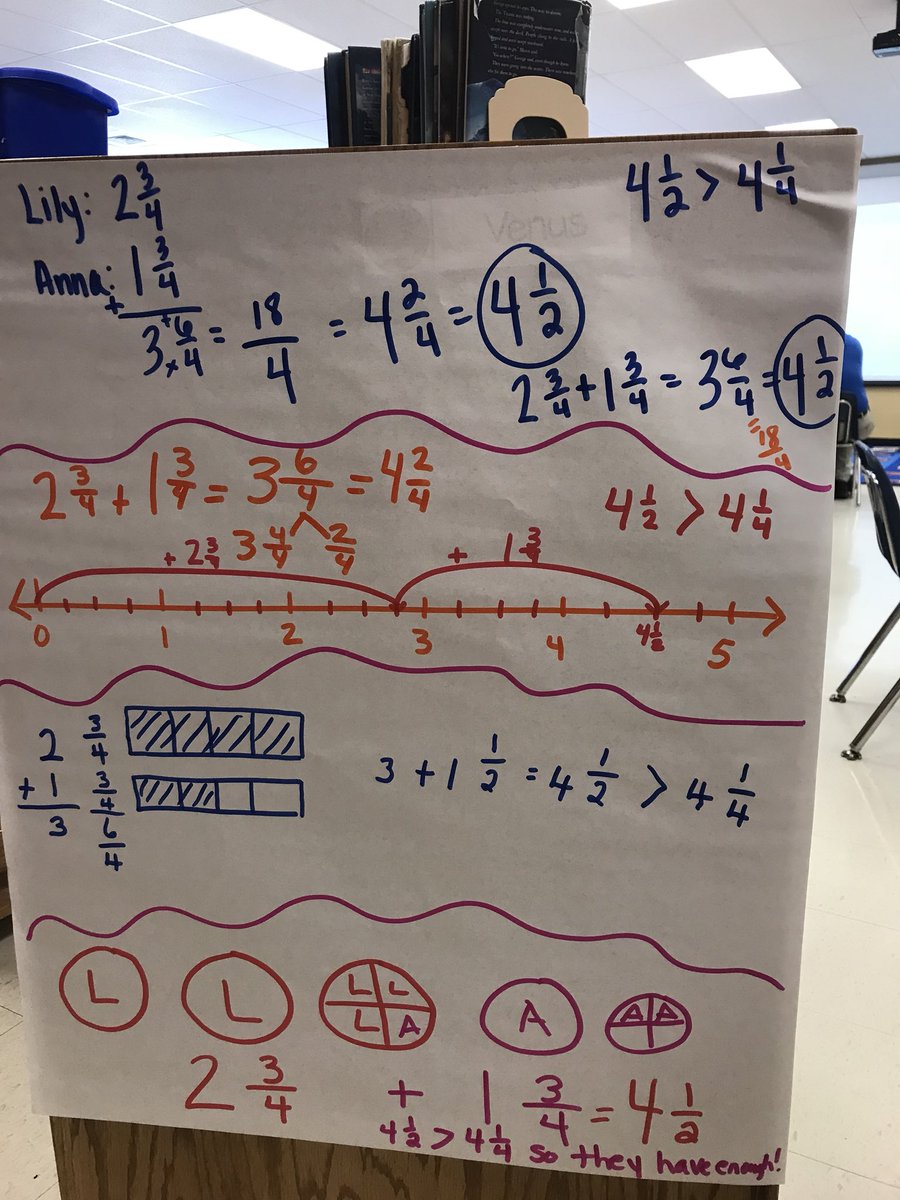 Lily: 2 3/4
4 1/2 > 4 1/4
Venus
Anna: + 1 3/4
3 + 6/4 = 18/4 = 4 2/4 = 4 1/2
x
2 3/4 + 1 3/4 = 3 6/4 = 4 1/2
= 18/4
2 3/4 + 1 3/4 = 3 6/4 = 4 2/4
4 1/2 > 4 1/4
3 4/4 2/4
+ 2 3/4 + 1 3/4
0 1 2 3 4 4 1/2 5
2 3/4
+ 1 3/4
3 6/4
3 + 1 1/2 = 4 1/2 > 4 1/4
L L L L L A A A A
2 3/4 + 1 3/4 = 4 1/2
4 1/2 > 4 1/4 so they have enough!